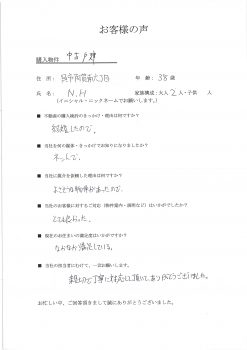 お客様の声
購入物件 中古戸建
住 所： 年 齢：38歳
氏 名： N.H 家族構成：大人2人・子供 人
(イニシャル・ニックネームでお願いします。)
■ 不動産の購入検討のきっかけ・理由は何ですか？
結婚したので。
■ 当社を何の媒体・きっかけでお知りになりましたか？
ネットで。
■ 当社に仲介を依頼した理由は何ですか？
よさそうな物件があったので。
■ 当社のお客様に対するご対応（物件案内・説明など）はいかがでしたか？
とても良かった。
■ 現在のお住まいの満足度はいかがですか？
なかなか満足している。
■ 当社の担当者にむけて、一言お願いします。
親切、丁寧に対応して頂いてありがとうございました。
お忙しい中、ご回答頂きまして誠にありがとうございました。